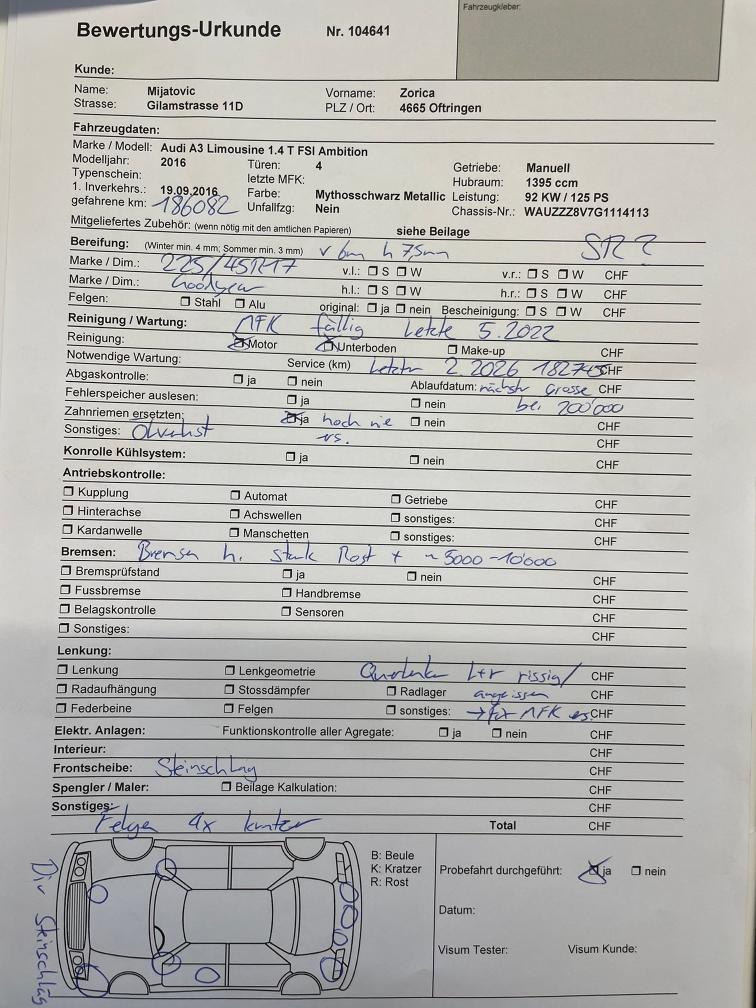 Fahrzeugkleber:
Bewertungs-Urkunde Nr. 104641
Kunde:
Name: Mijatovic Vorname: Zorica
Strasse: Gilamstrasse 11D PLZ / Ort: 4665 Oftringen
Fahrzeugdaten:
Marke / Modell: Audi A3 Limousine 1.4 T FSI Ambition
Modelljahr: 2016 Türen: 4 Getriebe: Manuell
Typenschein: letzte MFK: Hubraum: 1395 ccm
1. Inverkehrs.: 19.09.2016 Farbe: Mythosschwarz Metallic Leistung: 92 KW / 125 PS
gefahrene km: 186082 Unfallfzg: Nein Chassis-Nr.: WAUZZZ8V7G1114113
Mitgeliefertes Zubehör: (wenn nötig mit den amtlichen Papieren) siehe Beilage
Bereifung: (Winter min. 4 mm; Sommer min. 3 mm) v 6mm h 7,5mm SR?
Marke / Dim.: 225/45R17 v.l.: S W v.r.: S W CHF
Marke / Dim.: Goodyear h.l.: S W h.r.: S W CHF
Felgen: Stahl Alu original: ja nein Bescheinigung: S W CHF
Reinigung / Wartung: MFK fällig Letzte 5.2022
Reinigung: Motor Unterboden Make-up CHF
Notwendige Wartung: Service (km) Letzter 2.2026 182745 CHF
Abgaskontrolle: ja nein Ablaufdatum: nächste Grosse CHF
Fehlerspeicher auslesen: ja nein bei 200'000 CHF
Zahnriemen ersetzten: ja noch nie nein CHF
Sonstiges: Ölverlust CHF
Konrolle Kühlsystem: ja nein CHF
Antriebskontrolle:
Kupplung Automat Getriebe CHF
Hinterachse Achswellen sonstiges: CHF
Kardanwelle Manschetten sonstiges: CHF
Bremsen: Bremsen h. stark Rost + ~5000-10'000
Bremsprüfstand ja nein CHF
Fussbremse Handbremse CHF
Belagskontrolle Sensoren CHF
Sonstiges: CHF
Lenkung:
Lenkung Lenkgeometrie Querlenker l+r rissig/ CHF
Radaufhängung Stossdämpfer Radlager angerissen CHF
Federbeine Felgen sonstiges: → für MFK CHF
Elektr. Anlagen: Funktionskontrolle aller Agregate: ja nein CHF
Interieur: CHF
Frontscheibe: Steinschlag CHF
Spengler / Maler: Beilage Kalkulation: CHF
Sonstiges: CHF
Felgen 4x kratzer Total CHF
B: Beule
K: Kratzer
R: Rost
Probefahrt durchgeführt: ja nein
Datum:
Visum Tester: Visum Kunde:
Div Steinschlag